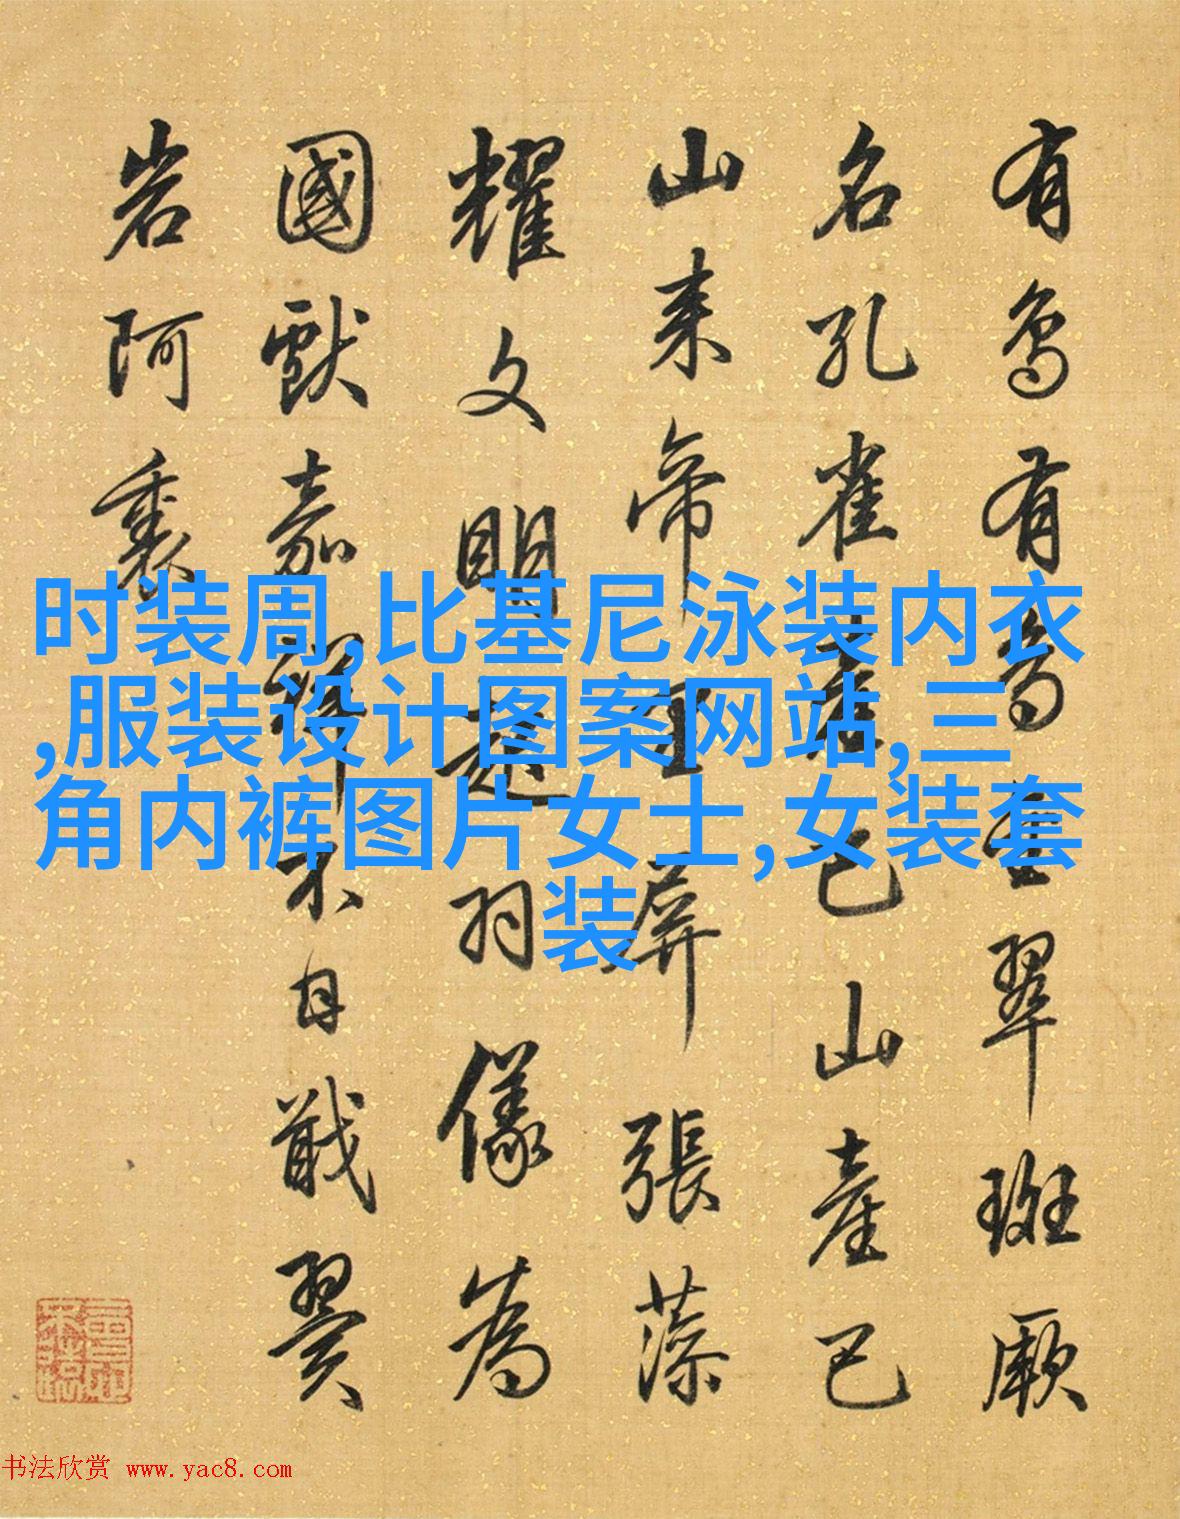 有鳥有鳥金翠斑厥
名孔雀產巴山產巴
山来帝王屏張藻
耀文明起羽儀為
國獻嘉祥不自戢翼
岩阿裏
时装周,比基尼泳装内衣
,服装设计图案网站,三
角内裤图片女士,女装套
装
书法欣赏 www.yac8.com